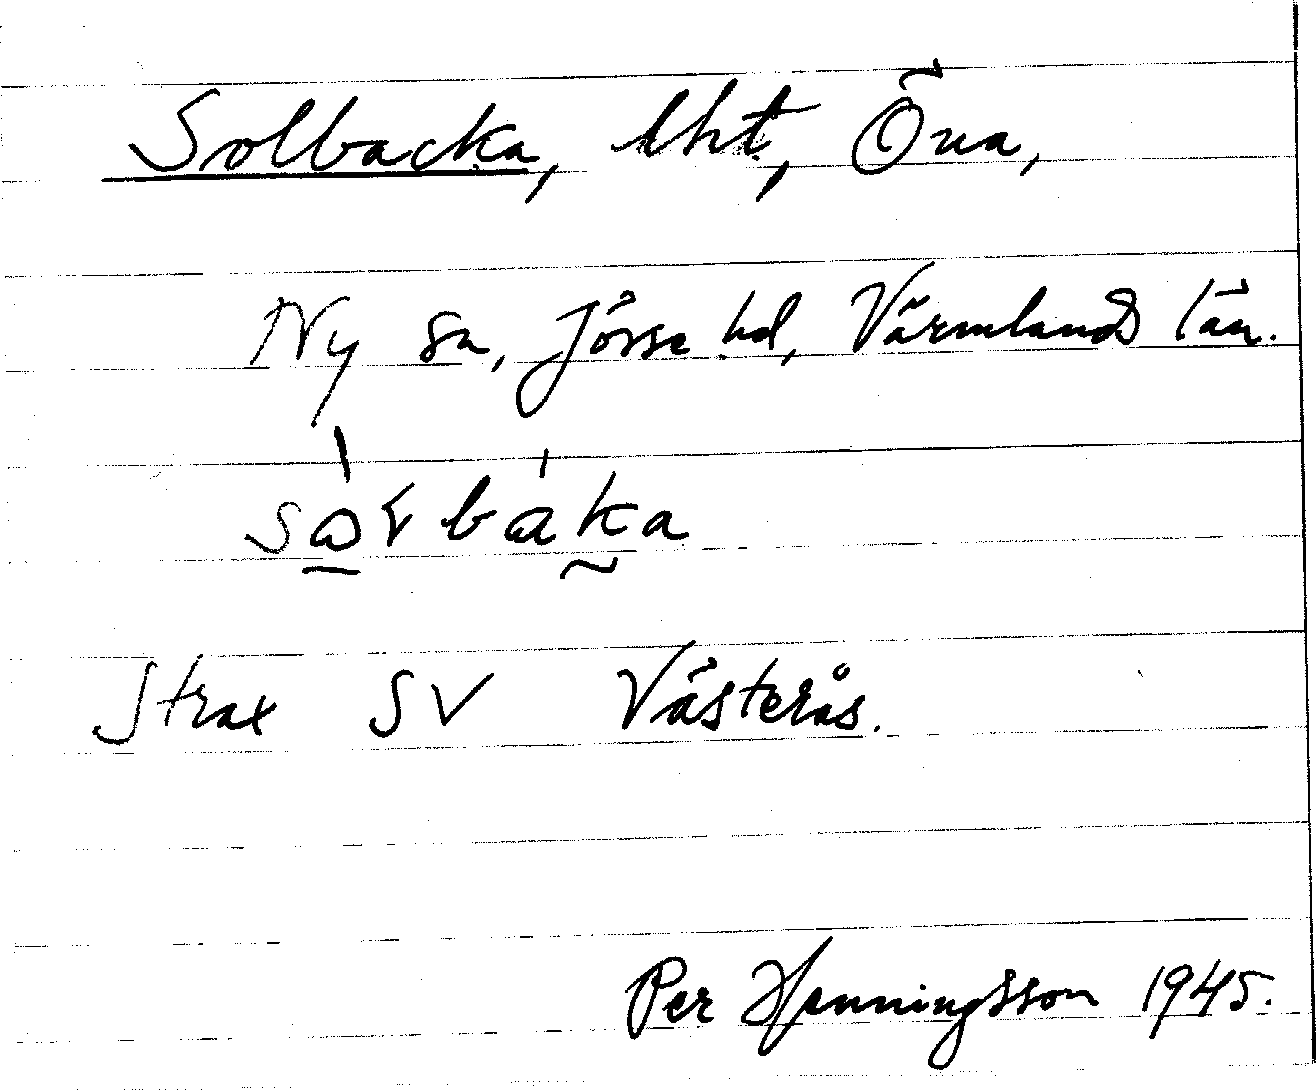 Solbacka, lht, Öna,
Ny sn, Jösse hd, Värmlands län.
Strax SV Västerås.
Per Henningsson 1945.